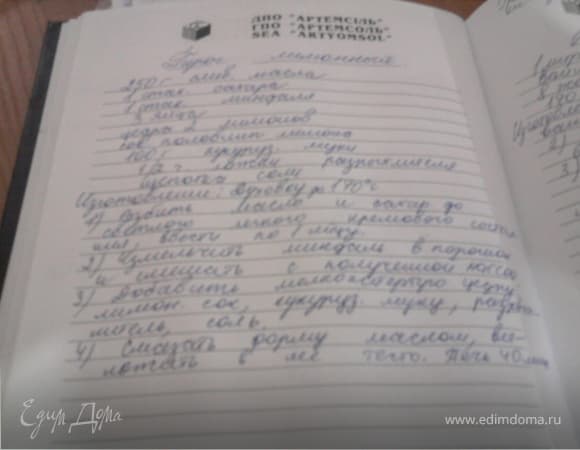 ДПО "АРТЕМСІЛЬ"
ГПО "АРТЕМСОЛЬ"
SEA "ARTYOMSOL"
Пирог лимонный
250 г слив. масла
1 стак. сахара
1 стак. миндаля
3 яйца
цедра 2 лимонов
сок половины лимона
100 г кукуруз. муки
1/2 ч. ложки разрыхлителя
щепотка соли
Изготовление: Духовку до 170°С
1) Взбить масло и сахар до
светлого легкого кремового состо-
яния, ввести по 1 яйцу.
2) Измельчить миндаль в порошок
и смешать с полученной массой
3) Добавить мелконатертую цедру,
лимон. сок, кукуруз. муку, разрых-
литель, соль.
4) Смазать форму маслом, вы-
ложить в нее тесто. Печь 40 мин
Едим Дома
www.edimdoma.ru